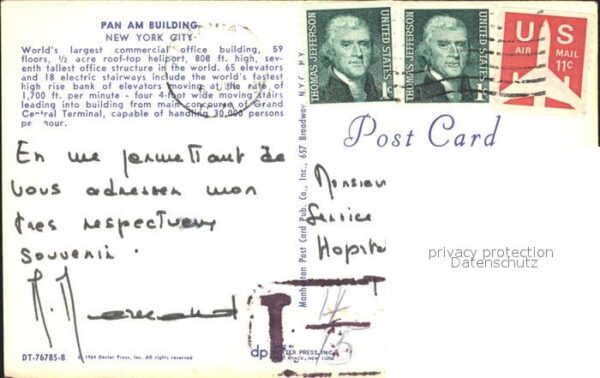 PAN AM BUILDING
NEW YORK CITY
World's largest commercial office building, 59
floors, ½ acre roof-top heliport, 808 ft. high, sev-
enth tallest office structure in the world. 65 elevators
and 18 electric stairways include the world's fastest
high rise bank of elevators moving at the rate of
1,700 ft. per minute - four 4-foot wide moving stairs
leading into building from main concourse of Grand
Central Terminal, capable of handling 30,000 persons
per hour.
En me permettant de
vous adresser mon
très respectueux
Souvenir.
DT-76785-B
© 1964 Dexter Press, Inc. All rights reserved
THOMAS JEFFERSON
UNITED STATES
1c
THOMAS JEFFERSON
UNITED STATES
1c
US
AIR MAIL
11¢
Post Card
Manhattan Post Card Pub. Co., Inc., 657 Broadway, N.Y.C., NY
Monsieur
Service
Hopital
privacy protection
Datenschutz
T.
15
dp
DEXTER PRESS, INC.
NYACK, NEW YORK